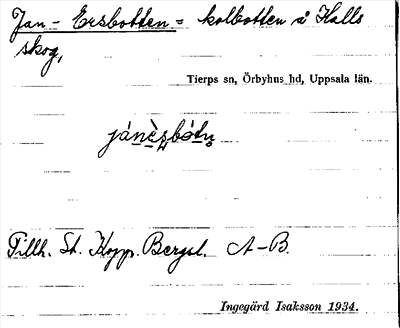 Jan-Ersbotten = kolbotten å Kalls
skog,
Tierps sn, Örbyhus hd, Uppsala län.
jánèsbótṇ
Tillh. St. Kopp. Bergsl. A-B.
Ingegärd Isaksson 1934.